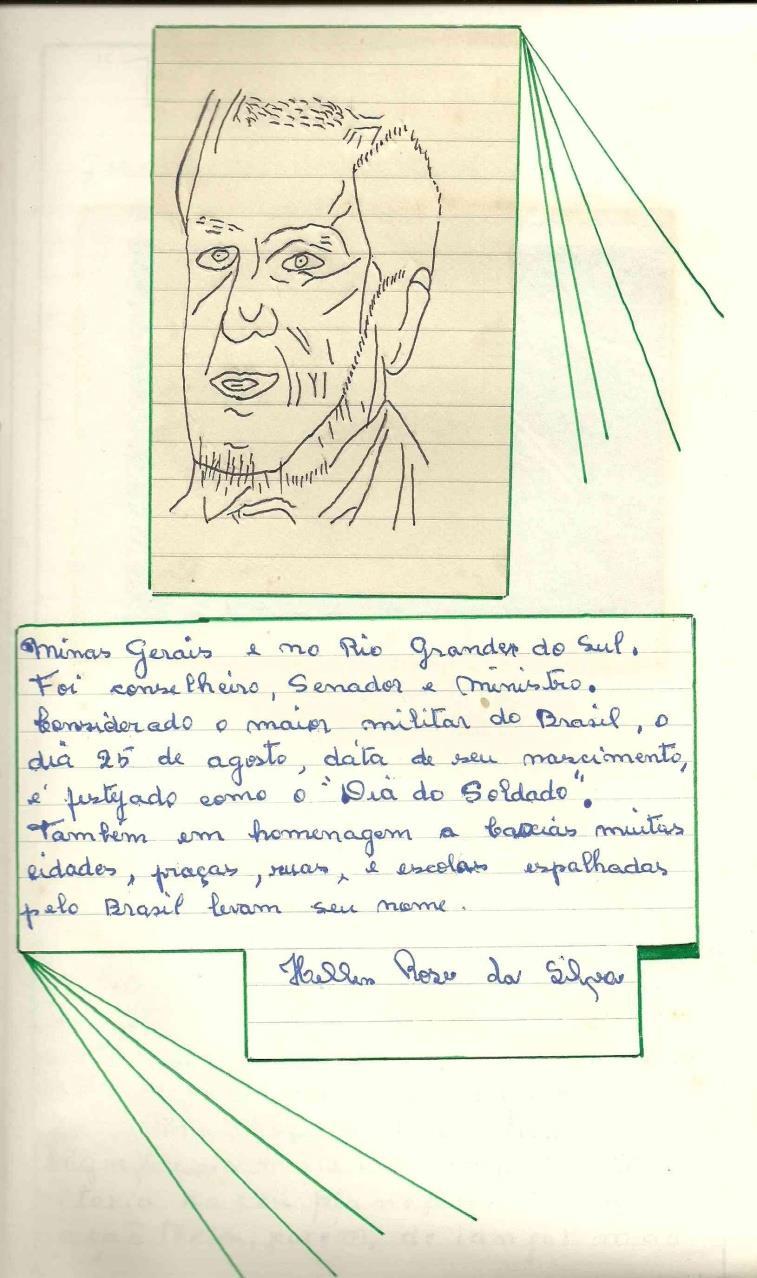 Minas Gerais e no Rio Grande do Sul.
Foi conselheiro, Senador e Ministro.
Considerado o maior militar do Brasil, o
dia 25 de agosto, data de seu nascimento,
é festejado como o "Dia do Soldado".
Também em homenagem a Caxias muitas
cidades, praças, ruas, e escolas espalhadas
pelo Brasil levam seu nome.
Hellen Rose da Silva